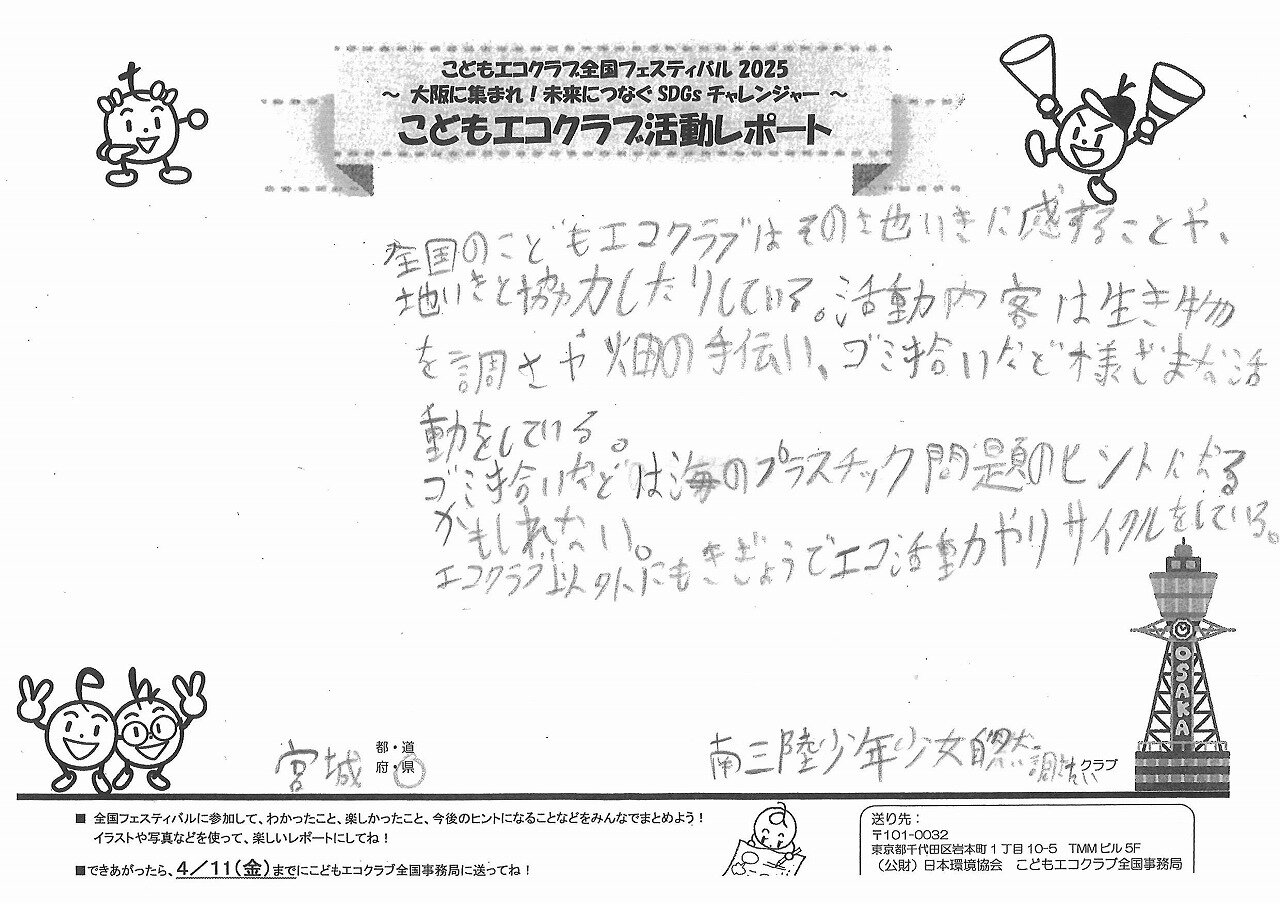 こどもエコクラブ全国フェスティバル 2025
～ 大阪に集まれ！未来につなぐ SDGs チャレンジャー ～
こどもエコクラブ活動レポート
全国のこどもエコクラブはその地いきに感することや、
地いきと協力したりしている。活動内容は生き物
を調さや畑の手伝い、ゴミ拾いなど様ざまな活
動をしている。
ゴミ拾いなどは海のプラスチック問題のヒントになる
かもしれない。
エコクラブ以外にもきぎょうでエコ活動やリサイクルをしている。
OSAKA
宮城 都・道 府・県
南三陸少年少女自然調査たい クラブ
■ 全国フェスティバルに参加して、わかったこと、楽しかったこと、今後のヒントになることなどをみんなでまとめよう！
イラストや写真などを使って、楽しいレポートにしてね！
■できあがったら、4／11(金)までにこどもエコクラブ全国事務局に送ってね！
送り先：
〒101-0032
東京都千代田区岩本町 1 丁目 10-5 TMM ビル 5F
（公財）日本環境協会 こどもエコクラブ全国事務局